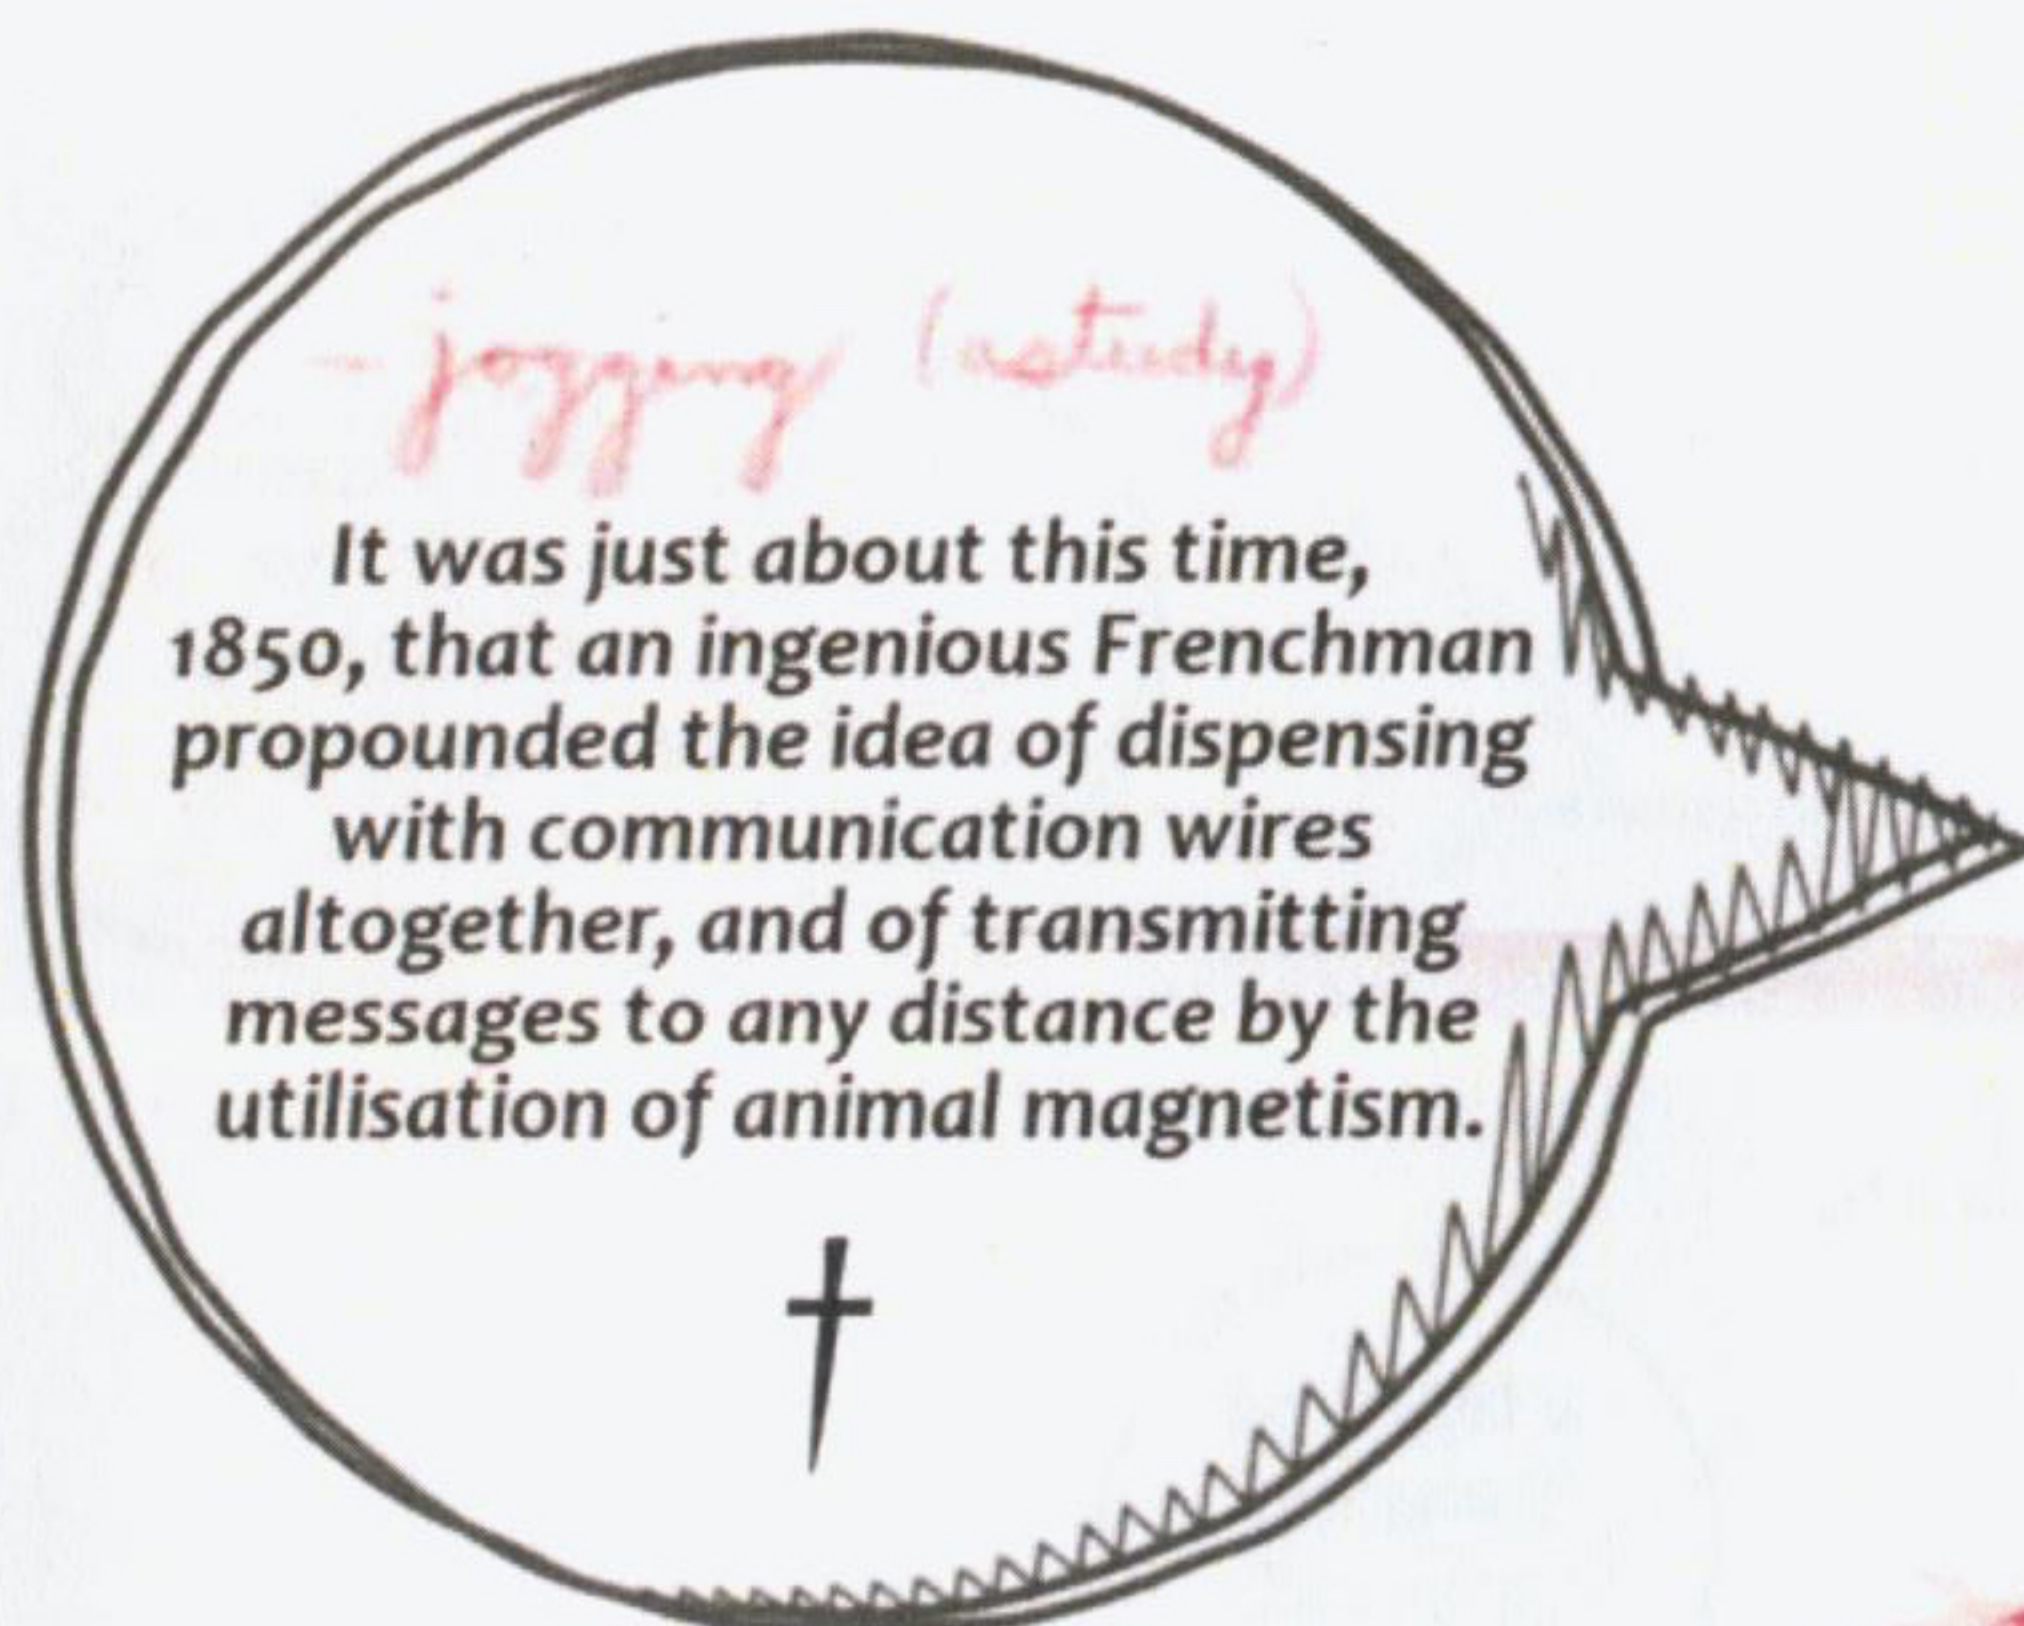 – jogging (a study)
It was just about this time,
1850, that an ingenious Frenchman
propounded the idea of dispensing
with communication wires
altogether, and of transmitting
messages to any distance by the
utilisation of animal magnetism.
†